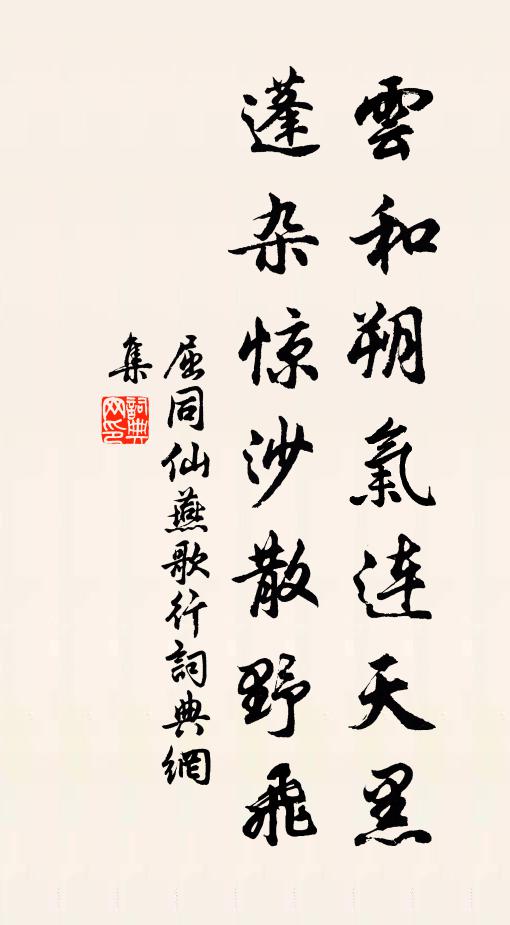 雲和朔氣连天黑
蓬杂惊沙散野飛
屈同仙燕歌行詞典網
集
詞典
网印